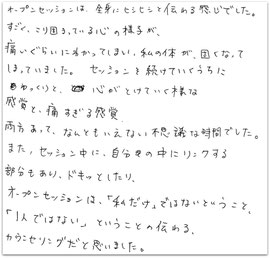 オープンセッションは、全身にヒシヒシと伝わる感じでした。
すごく、こり固まっている心の様子が、
痛いぐらいにわかってしまい、私の体が、固くなって
しまっていました。 セッションを続けていくうちに
ゆっくりと、 心がとけていく様な
感覚と、痛すぎる感覚、
両方あって、なんともいえない不思議な時間でした。
また、セッション中に、自分の中にリンクする
部分もあり、ドキッとしたり、
オープンセッションは、「私だけ」ではないということ、
「1人ではない」 ということの伝わる、
カウンセリングだと思いました。